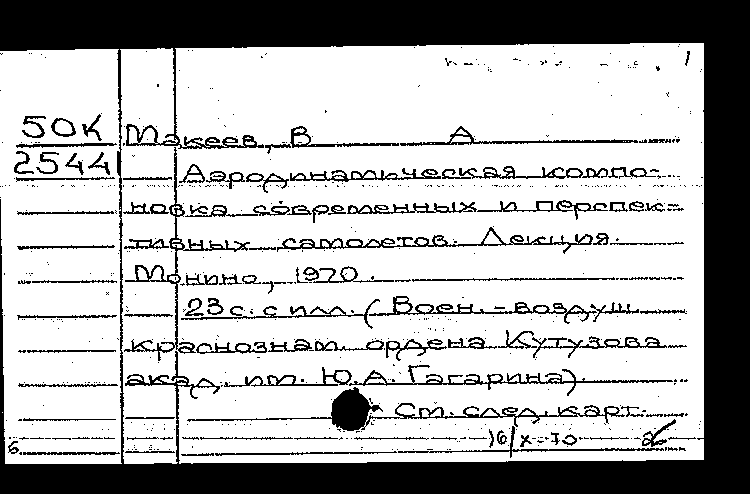 1
50К Макеев, В А
25441 Аэродинамическая компо-
новка современных и перспек-
тивных самолетов. Лекция.
Монино, 1970.
23 с. с илл. (Воен.-воздуш.
краснознам. ордена Кутузова
акад. им. Ю.А. Гагарина).
См. след. карт.
16/X-70
6